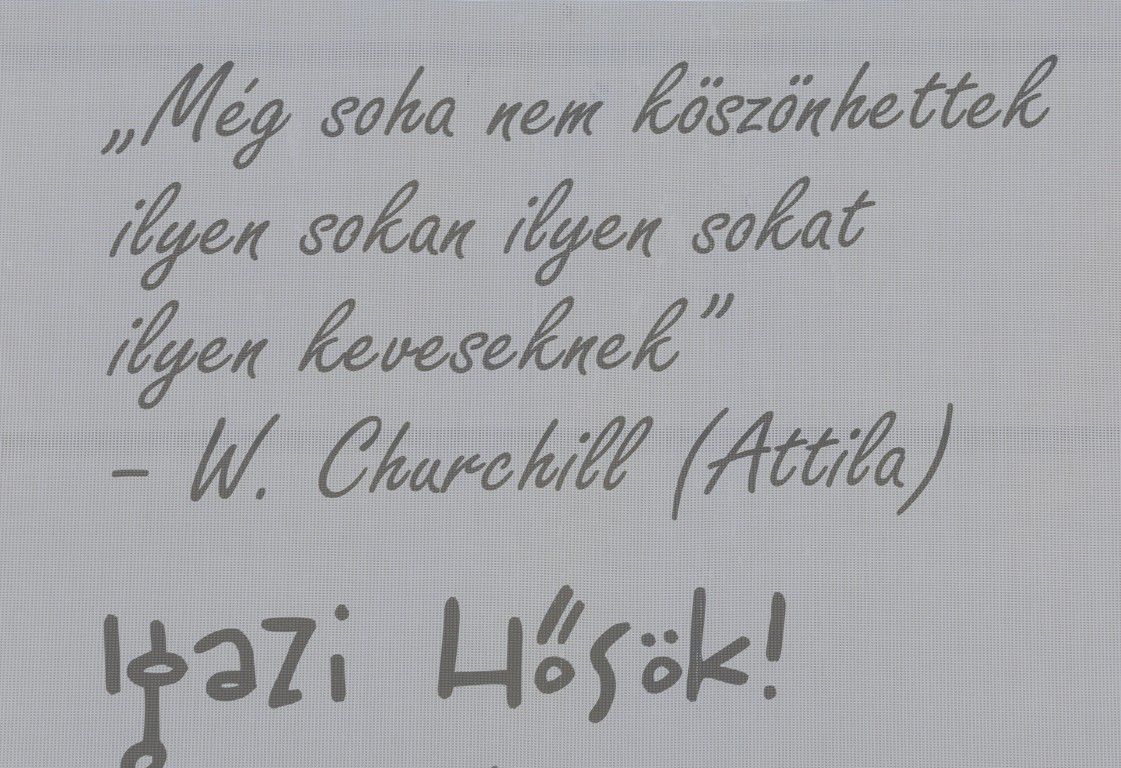 „Még soha nem köszönhettek
ilyen sokan ilyen sokat
ilyen keveseknek”
– W. Churchill (Attila)
Igazi Hősök!